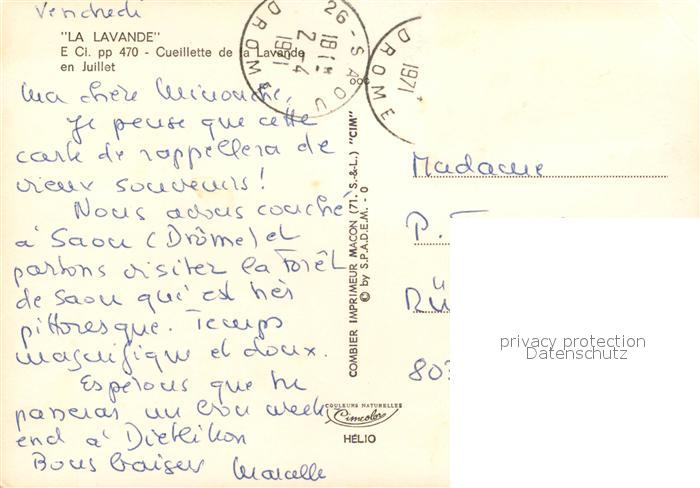 Vendredi
"LA LAVANDE"
E Ci. pp 470 - Cueillette de la Lavande
en Juillet
Ma chère Minouche,
Je pense que cette
carte te rappellera de
vieux souvenirs !
Nous avons couché
à Saou (Drôme) et
partons visiter la Forêt
de Saou qui est très
pittoresque. Temps
magnifique et doux.
Espérons que tu
passeras un bon week
end à Dietlikon
Bons baisers Marcelle
26 - SAOU
18H
2-4
1971
DROME
1971
DROME
COMBIER IMPRIMEUR MACON (71. S.-&-L.) "CIM"
© by S.P.A.D.E.M. - 0
COULEURS NATURELLES
Cimcolor
HÉLIO
Madame
P.
Rü
803
privacy protection
Datenschutz